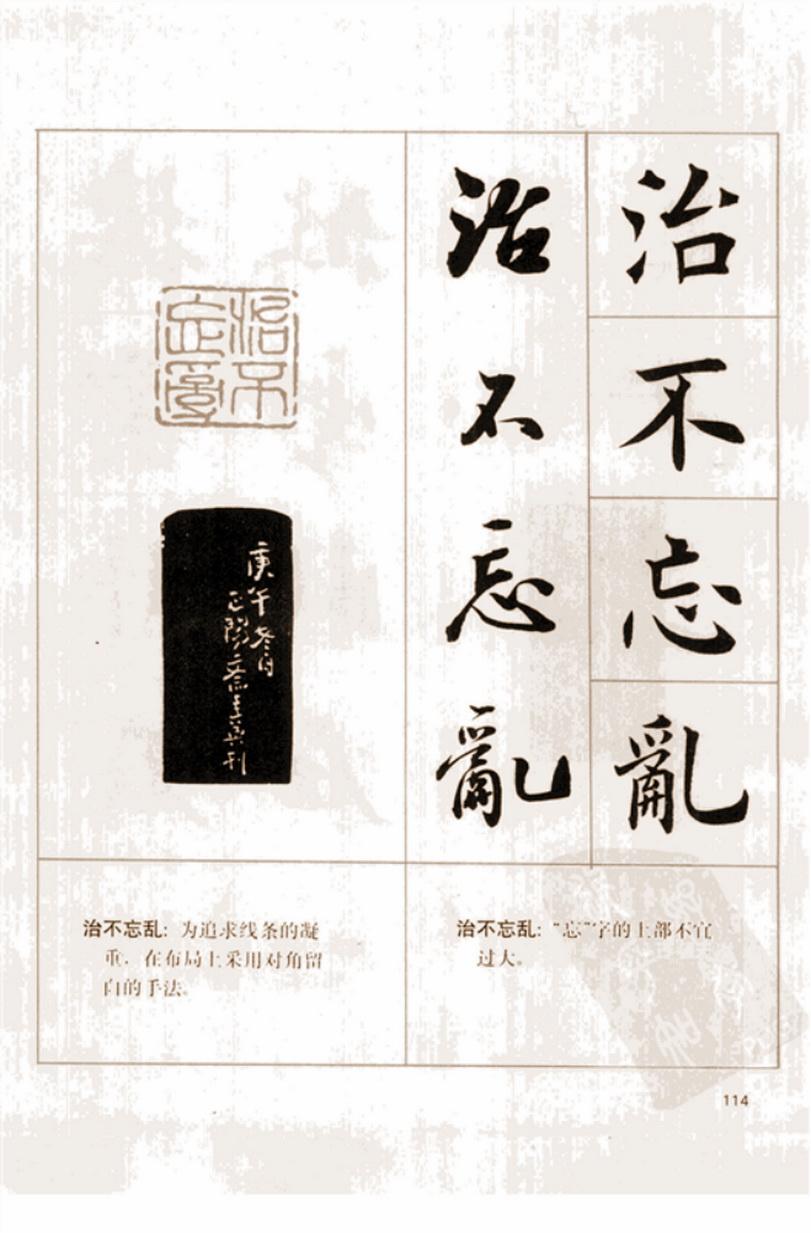 治不忘亂
治不忘亂
治不
忘亂
庚午冬月
正陽齋主吳刊
治不忘乱：为追求线条的凝
重，在布局上采用对角留
白的手法。
治不忘乱：“忘”字的上部不宜
过大。
114